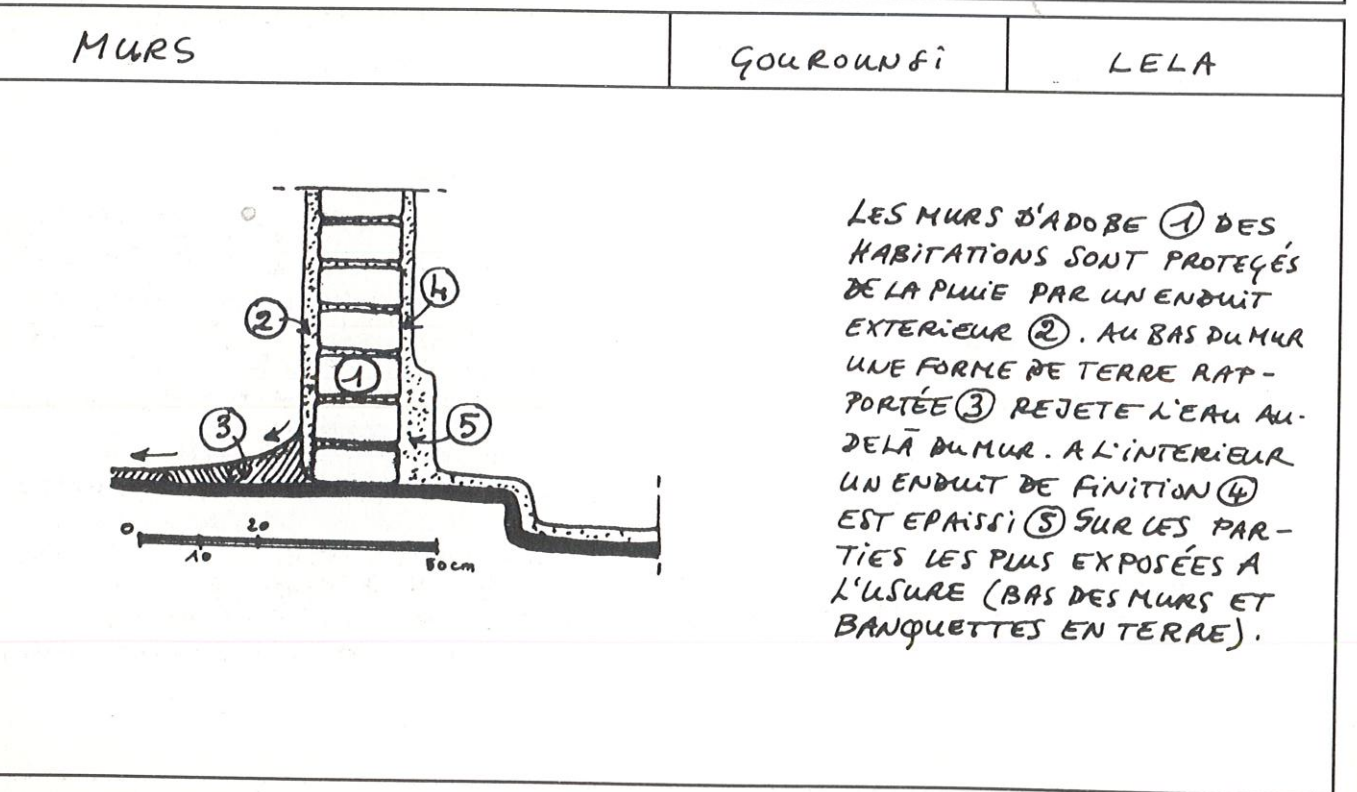 MURS
GOUROUNSI
LELA
2
4
1
3
5
0
10
20
50cm
LES MURS D'ADOBE ① DES
HABITATIONS SONT PROTEGÉS
DE LA PLUIE PAR UN ENDUIT
EXTERIEUR ②. AU BAS DU MUR
UNE FORME DE TERRE RAP-
PORTÉE ③ REJETE L'EAU AU-
DELÀ DU MUR. A L'INTERIEUR
UN ENDUIT DE FINITION ④
EST EPAISSI ⑤ SUR LES PAR-
TIES LES PLUS EXPOSÉES A
L'USURE (BAS DES MURS ET
BANQUETTES EN TERRE).